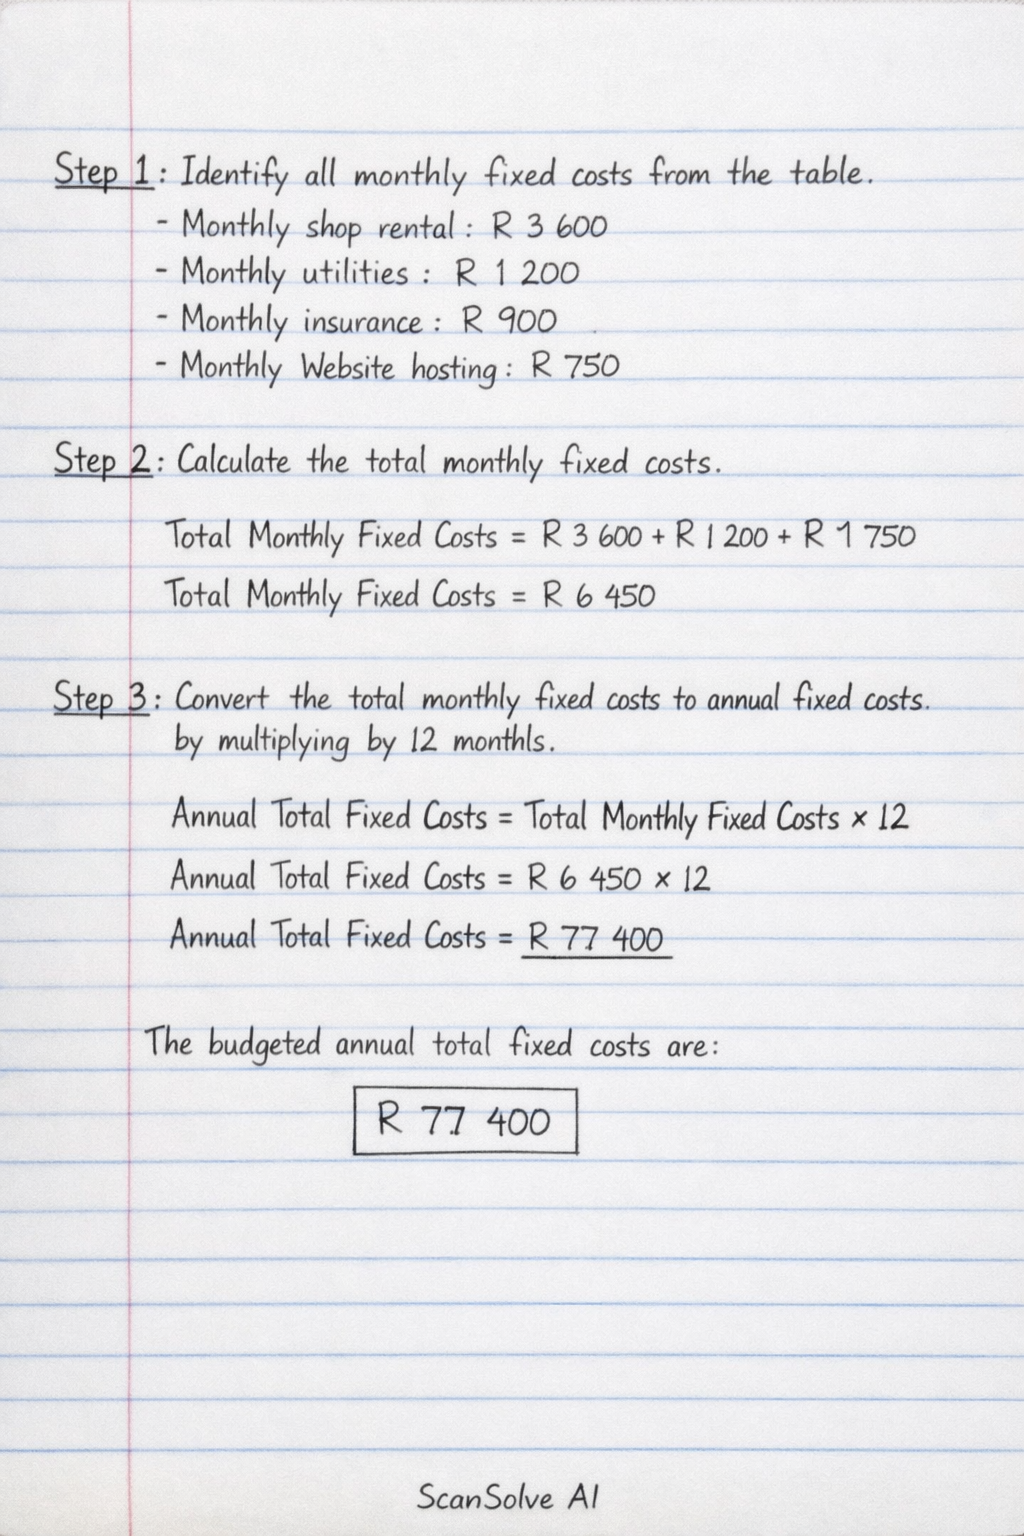 Step 1: Identify all monthly fixed costs from the table.
- Monthly shop rental: R 3 600
- Monthly utilities: R 1 200
- Monthly insurance: R 900
- Monthly Website hosting: R 750
Step 2: Calculate the total monthly fixed costs.
Total Monthly Fixed Costs = R 3 600 + R 1 200 + R 1 750
Total Monthly Fixed Costs = R 6 450
Step 3: Convert the total monthly fixed costs to annual fixed costs.
by multiplying by 12 monthls.
Annual Total Fixed Costs = Total Monthly Fixed Costs × 12
Annual Total Fixed Costs = R 6 450 × 12
Annual Total Fixed Costs = R 77 400
The budgeted annual total fixed costs are:
R 77 400
ScanSolve AI